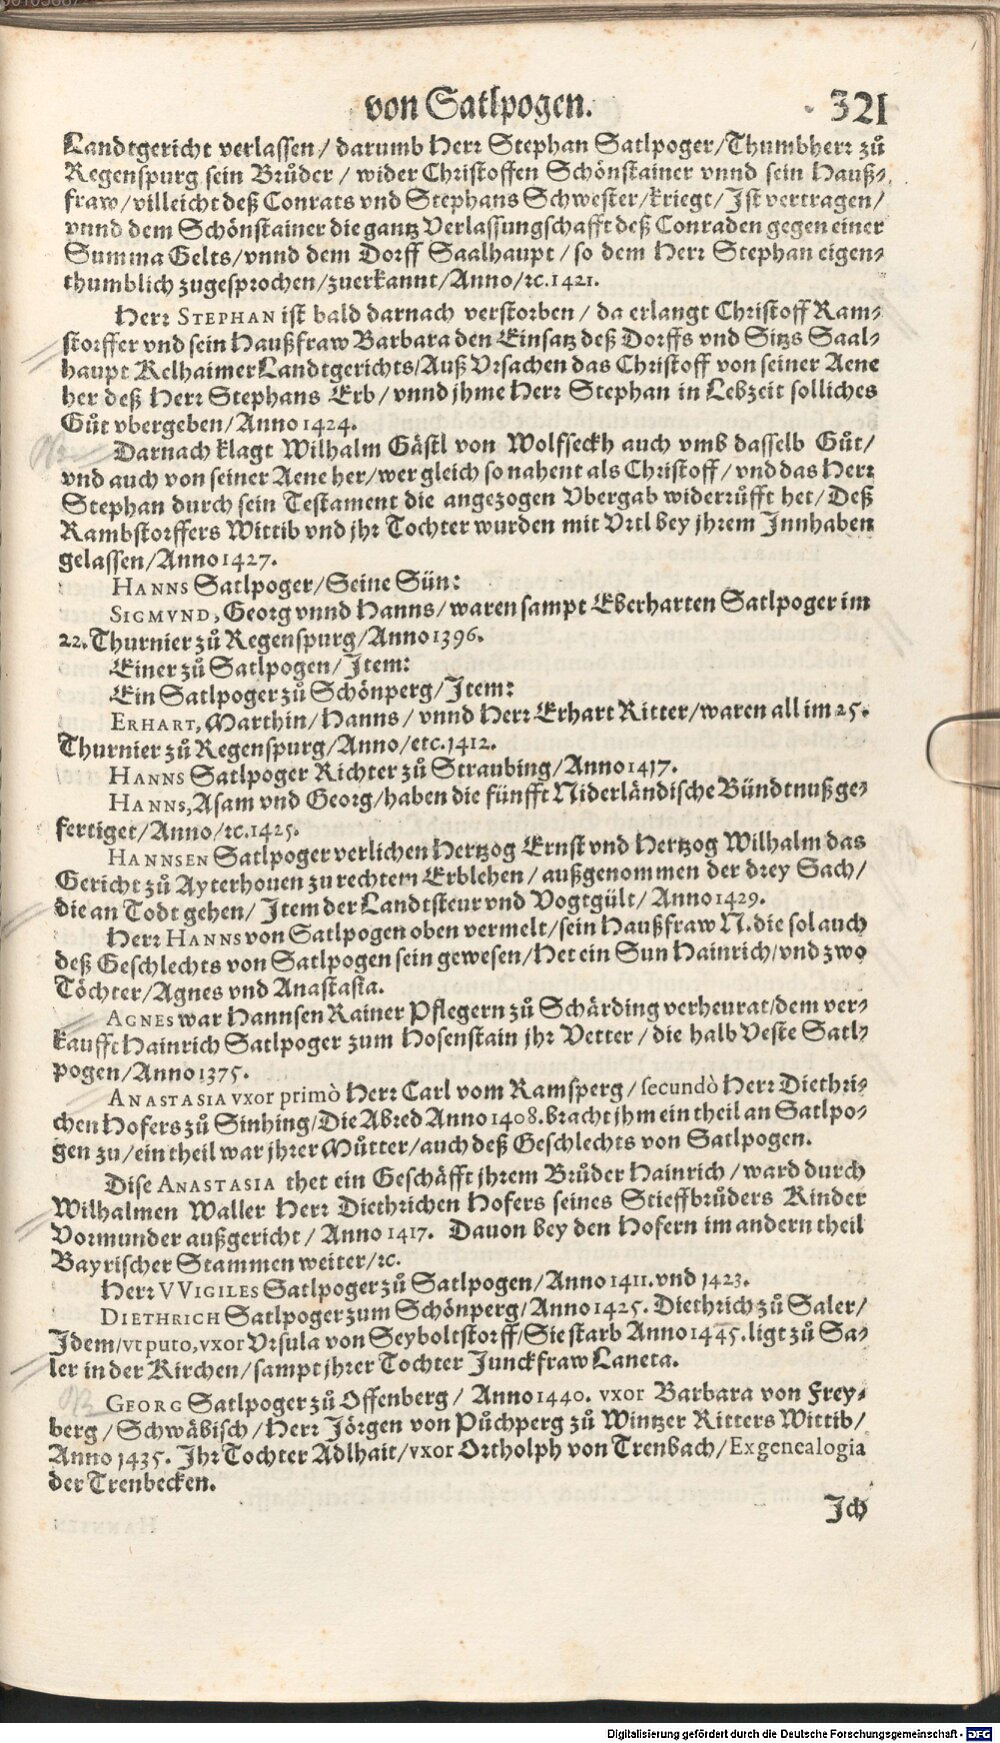 von Satlpogen. 321
Landtgericht verlassen / darumb Herr Stephan Satlpoger/Thumbherr zů
Regenspurg sein Brůder / wider Christoffen Schönstainer vnnd sein Hauß-
fraw/villeicht deß Conrats vnd Stephans Schwester/kriegt/Ist vertragen/
vnnd dem Schönstainer die gantz Verlassungschafft deß Conraden gegen einer
Summa Gelts/vnnd dem Dorff Saalhaupt / so dem Herr Stephan eigen-
thumblich zugesprochen/zuerkannt/Anno/rc.1421.
Herr STEPHAN ist bald darnach verstorben / da erlangt Christoff Ram-
storffer vnd sein Haußfraw Barbara den Einsatz deß Dorffs vnd Sitzs Saal-
haupt Kelhaimer Landtgerichts/Auß Vrsachen das Christoff von seiner Aene
her deß Herr Stephans Erb / vnnd jhme Herr Stephan in Lebzeit solliches
Gůt vbergeben/Anno 1424.
Darnach klagt Wilhalm Gästl von Wolfseckh auch vmb dasselb Gůt/
vnd auch von seiner Aene her/wer gleich so nahent als Christoff / vnd das Herr
Stephan durch sein Testament die angezogen Vbergab widerrůfft het/Deß
Rambstorffers Wittib vnd jhr Tochter wurden mit Vrtl bey jhrem Innhaben
gelassen/Anno 1427.
HANNS Satlpoger/Seine Sün:
SIGMVND, Georg vnnd Hanns/waren sampt Eberharten Satlpoger im
22. Thurnier zů Regenspurg/Anno 1396.
Einer zů Satlpogen/Item:
Ein Satlpoger zů Schönperg/Item:
ERHART, Marthin/Hanns / vnnd Herr Erhart Ritter/waren all im 25.
Thurnier zů Regenspurg/Anno/etc.1412.
HANNS Satlpoger Richter zů Straubing/Anno 1417.
HANNS, Asam vnd Georg/haben die fünfft Niderländische Bündtnuß ge-
fertiget/Anno/rc.1425.
HANNSEN Satlpoger verlichen Hertzog Ernst vnd Hertzog Wilhalm das
Gericht zů Ayterhouen zu rechtem Erblehen / außgenommen der drey Sach/
die an Todt gehen/ Item der Landtsteur vnd Vogtgült/ Anno 1429.
Herr HANNS von Satlpogen oben vermelt/sein Haußfraw N. die sol auch
deß Geschlechts von Satlpogen sein gewesen/Het ein Sun Hainrich/vnd zwo
Töchter/Agnes vnd Anastasia.
AGNES war Hannsen Rainer Pflegern zů Schärding verheurat/dem ver-
kaufft Hainrich Satlpoger zum Hosenstain jhr Vetter / die halb Veste Satl-
pogen/Anno 1375.
ANASTASIA vxor primò Herr Carl vom Ramsperg / secundò Herr Diethri-
chen Hofers zů Sinhing/Die Abred Anno 1408. bracht jhm ein theil an Satlpo-
gen zu/ein theil war jhrer Můtter/auch deß Geschlechts von Satlpogen.
Dise ANASTASIA thet ein Geschäfft jhrem Brůder Hainrich / ward durch
Wilhalmen Waller Herr Diethrichen Hofers seines Stieffbrůders Kinder
Vormunder außgericht / Anno 1417. Dauon bey den Hofern im andern theil
Bayrischer Stammen weiter/rc.
Herr VVIGILES Satlpoger zů Satlpogen/Anno 1411. vnd 1423.
DIETHRICH Satlpoger zum Schönperg/Anno 1425. Diethrich zů Saler/
Idem/vt puto, vxor Vrsula von Seyboltstorff/Sie starb Anno 1445. ligt zů Sa-
ler in der Kirchen/sampt jhrer Tochter Junckfraw Laneta.
GEORG Satlpoger zů Offenberg / Anno 1440. vxor Barbara von Frey-
berg / Schwäbisch / Herr Jörgen von Půchperg zů Wintzer Ritters Wittib/
Anno 1435. Ihr Tochter Adlhait/vxor Ortholph von Trenbach/Ex genealogia
der Trenbecken.
Ich
Digitalisierung gefördert durch die Deutsche Forschungsgemeinschaft - DFG